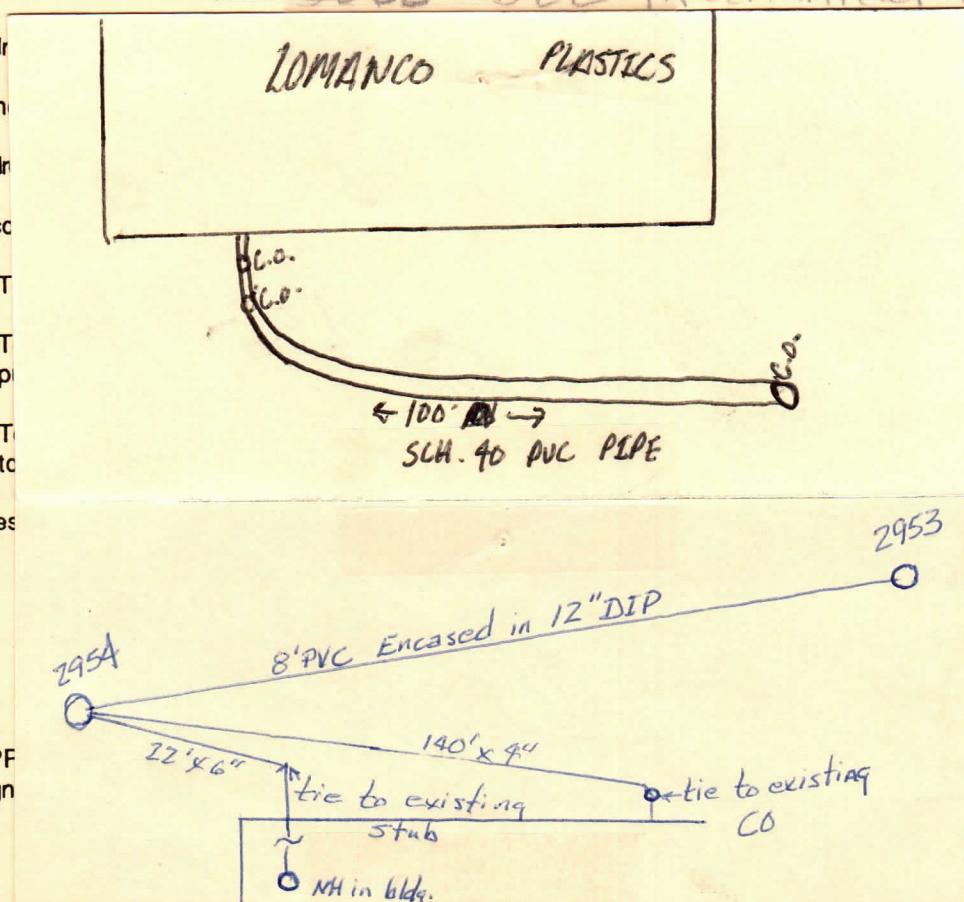 LOMANCO PLASTICS
C.O.
C.O.
C.O.
← 100' →
SCH. 40 PVC PIPE
2953
8'PVC Encased in 12"DIP
2954
22'x6"
140'x4"
tie to existing
stub
tie to existing
CO
MH in bldg.